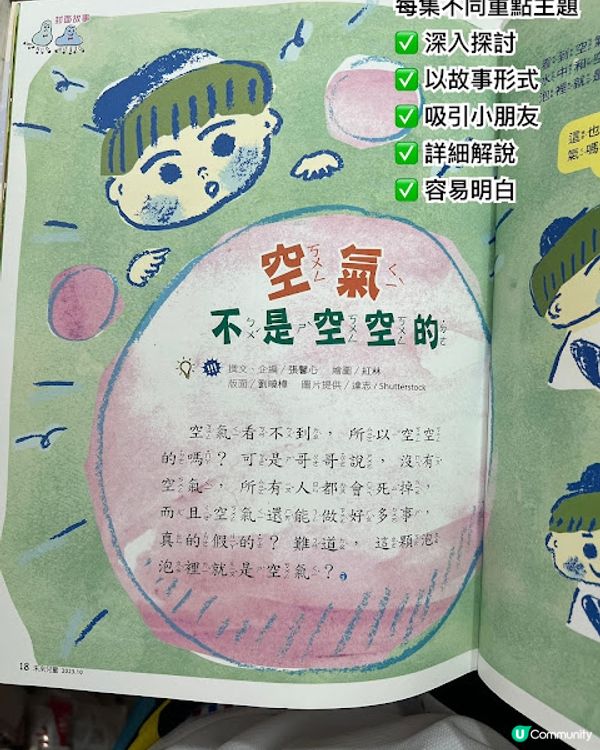 封面故事
每集不同重點主題
✅ 深入探討
✅ 以故事形式
✅ 吸引小朋友
✅ 詳細解說
✅ 容易明白
空氣
不是空空的
撰文、企編／張馨心 繪圖／紅林
版面／劉曉樺 圖片提供／達志／Shutterstock
空氣看不到，所以空空
的嗎？可是哥哥說，沒有
空氣，所有人都會死掉，
而且空氣還能做好多事，
真的假的？難道，這顆泡
泡裡就是空氣？
18 未來兒童 2023.10
看到空氣
水中和空
泡裡就是
這也
氣嗎
U Community